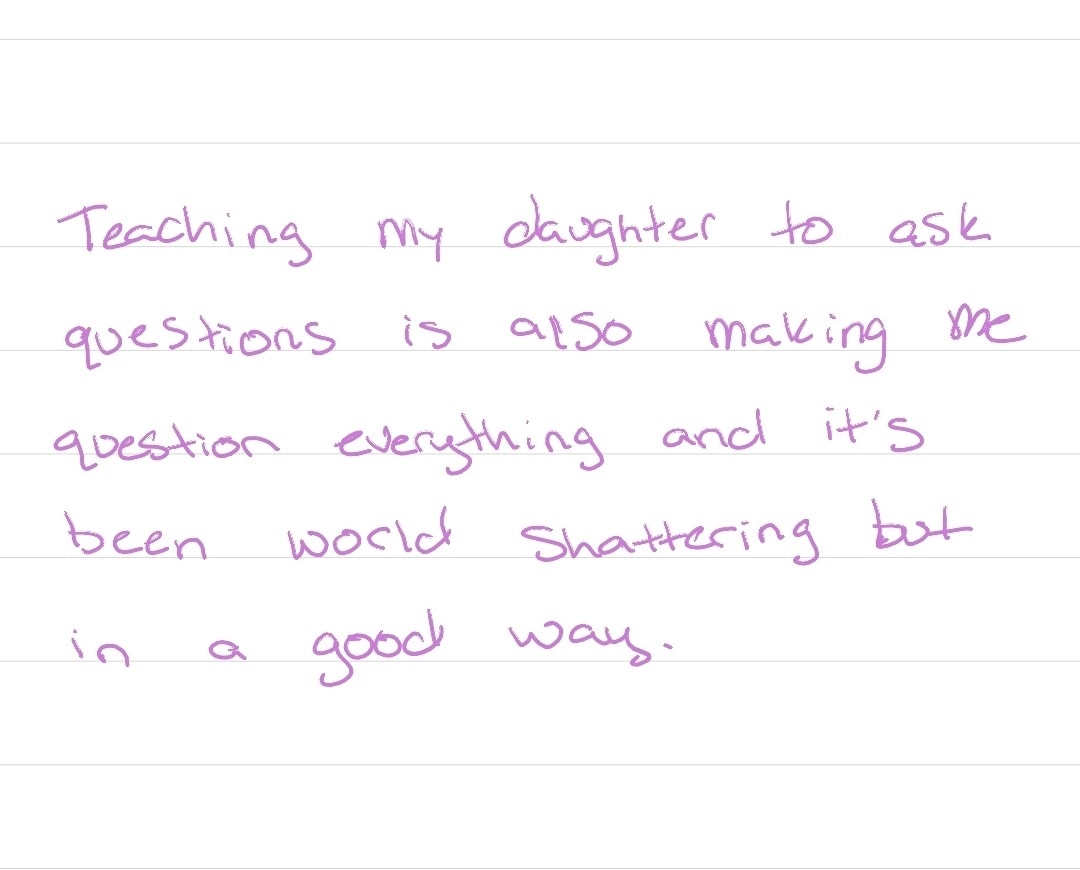 Teaching my daughter to ask
questions is also making me
question everything and it's
been world shattering but
in a good way.